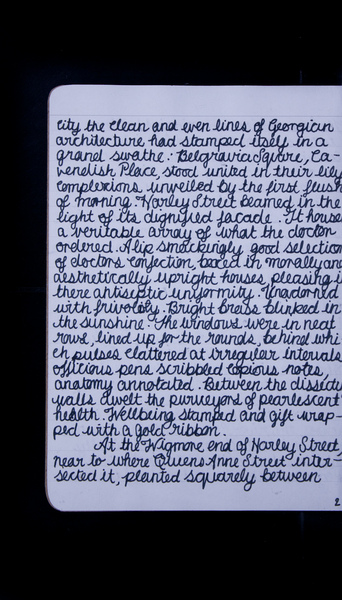 city the clean and even lines of Georgian
architecture had stamped itself in a
grand swathe. Belgravia Square, Ca-
vendish Place, stood united in their lily
complexions unveiled by the first flush
of morning. Harley Street beamed in the
light of its dignified facade. It house
a veritable array of what the doctor
ordered. A lip smackingly good selection
of doctors confection, boxed in morally and
aesthetically upright houses, pleasing i
there antiseptic uniformity. Unadorned
with frivolity. Bright brass blinked in
the sunshine. The windows were in neat
rows, lined up for the rounds, behind whi
ch pulses clattered at irregular intervals
officious pens scribbled copious notes,
anatomy annotated. Between the dissecte
walls dwelt the purveyors of pearlescent
health. Wellbeing stamped and gift wrap-
ped with a gold ribbon.
At the Wigmore end of Harley Street,
near to where Queens Anne Street inter-
sected it, planted squarely between
2